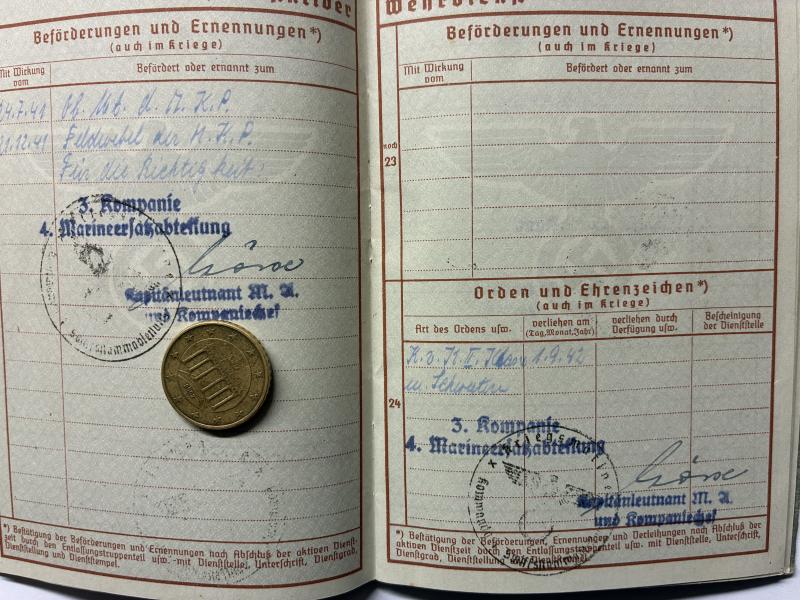 Wehrdienst
Beförderungen und Ernennungen*)
(auch im Kriege)
Mit Wirkung vom
Befördert oder ernannt zum
24.7.41 Ob. Mt. d. M.K.P.
21.12.41 Feldwebel der M.K.P.
Für die Richtigkeit:
3. Kompanie
4. Marineersatzabteilung
Kapitänleutnant M. A.
und Kompaniechef
*) Bestätigung der Beförderungen und Ernennungen nach Abschluß der aktiven Dienst-
zeit durch den Entlassungstruppenteil usw. mit Dienststelle, Unterschrift, Dienstgrad,
Dienststellung und Dienststempel.
Beförderungen und Ernennungen*)
(auch im Kriege)
Mit Wirkung vom
Befördert oder ernannt zum
noch
23
Orden und Ehrenzeichen*)
(auch im Kriege)
Art des Ordens usw.
verliehen am
(Tag, Monat, Jahr)
verliehen durch
Verfügung usw.
Bescheinigung
der Dienststelle
K.v.K. II. Klasse 1.9.42
m. Schwertern
24
3. Kompanie
4. Marineersatzabteilung
Kapitänleutnant M. A.
und Kompaniechef
*) Bestätigung der Beförderungen, Ernennungen und Verleihungen nach Abschluß der
aktiven Dienstzeit durch den Entlassungstruppenteil usw. mit Dienststelle, Unterschrift,
Dienstgrad, Dienststellung und Dienststempel.